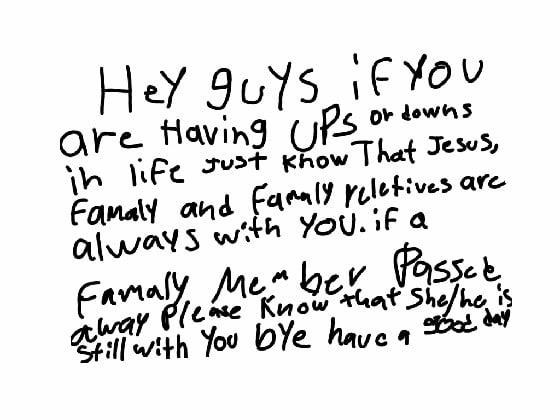 Hey guys if you
are Having UPs or downs
in life Just Know That Jesus,
Famaly and Famaly reletives are
always with you. if a
Famaly Member Passed
away Please Know that She/he is
still with you bye have a good day